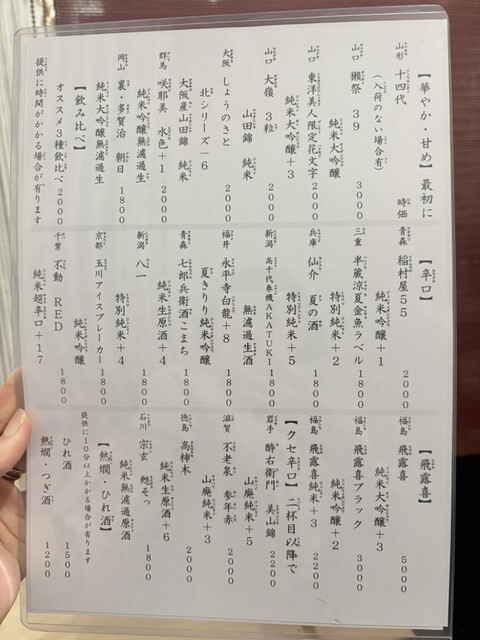 【華やか・甘め】最初に
山形 十四代 時価
(入荷のない場合有)
山口 獺祭 39
純米大吟醸 3000
山口 東洋美人限定花文字
純米大吟醸+3 2000
山口 大嶺 3粒
山田錦 純米 2000
大阪 しょうのさと
北シリーズ-6 2000
大阪産山田錦 純米
群馬 咲耶美 水色+1 2000
純米吟醸無濾過生
岡山 裏・多賀治 朝日 1800
純米大吟醸無濾過生
【飲み比べ】
オススメ3種飲比べ 2000
提供に時間がかかる場合が有ります
【辛口】
青森 稲村屋55 2000
純米吟醸+1
三重 半蔵涼夏金魚ラベル 1800
特別純米+2
兵庫 仙介 夏の酒 1800
特別純米+5
新潟 高千代巻機AKATUKI 1800
無濾過生酒
福井 永平寺白龍+8 1800
夏きりり純米吟醸
青森 七郎兵衛酒こまち 1800
純米生原酒+4
新潟 八一 特別純米+4 1800
京都 玉川アイスブレーカー 1800
純米吟醸
千葉 不動 RED 1800
純米超辛口+17
【飛露喜】
福島 飛露喜 5000
純米大吟醸+3
福島 飛露喜ブラック 3000
純米吟醸+2
福島 飛露喜純米+3 2200
【クセ辛口】二杯目以降で
岩手 酔右衛門 美山錦 2200
山廃純米+5
滋賀 不老泉 参年赤 2000
山廃純米+3
徳島 高柿木 2000
純米生原酒+6
石川 宗玄 甦そっ 1800
純米無濾過原酒
【熱燗・ひれ酒】
提供に10分以上かかる場合が有ります
ひれ酒 1500
熱燗・つぎ酒 1200